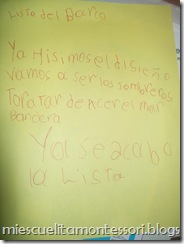 Lista del Barco
Ya Hisimos el diseño
vamos a ser los sombreros
Tratar de Acer el mar
Bancera
Ya se acabo
la Lista
miescuelitamontessori.blogs